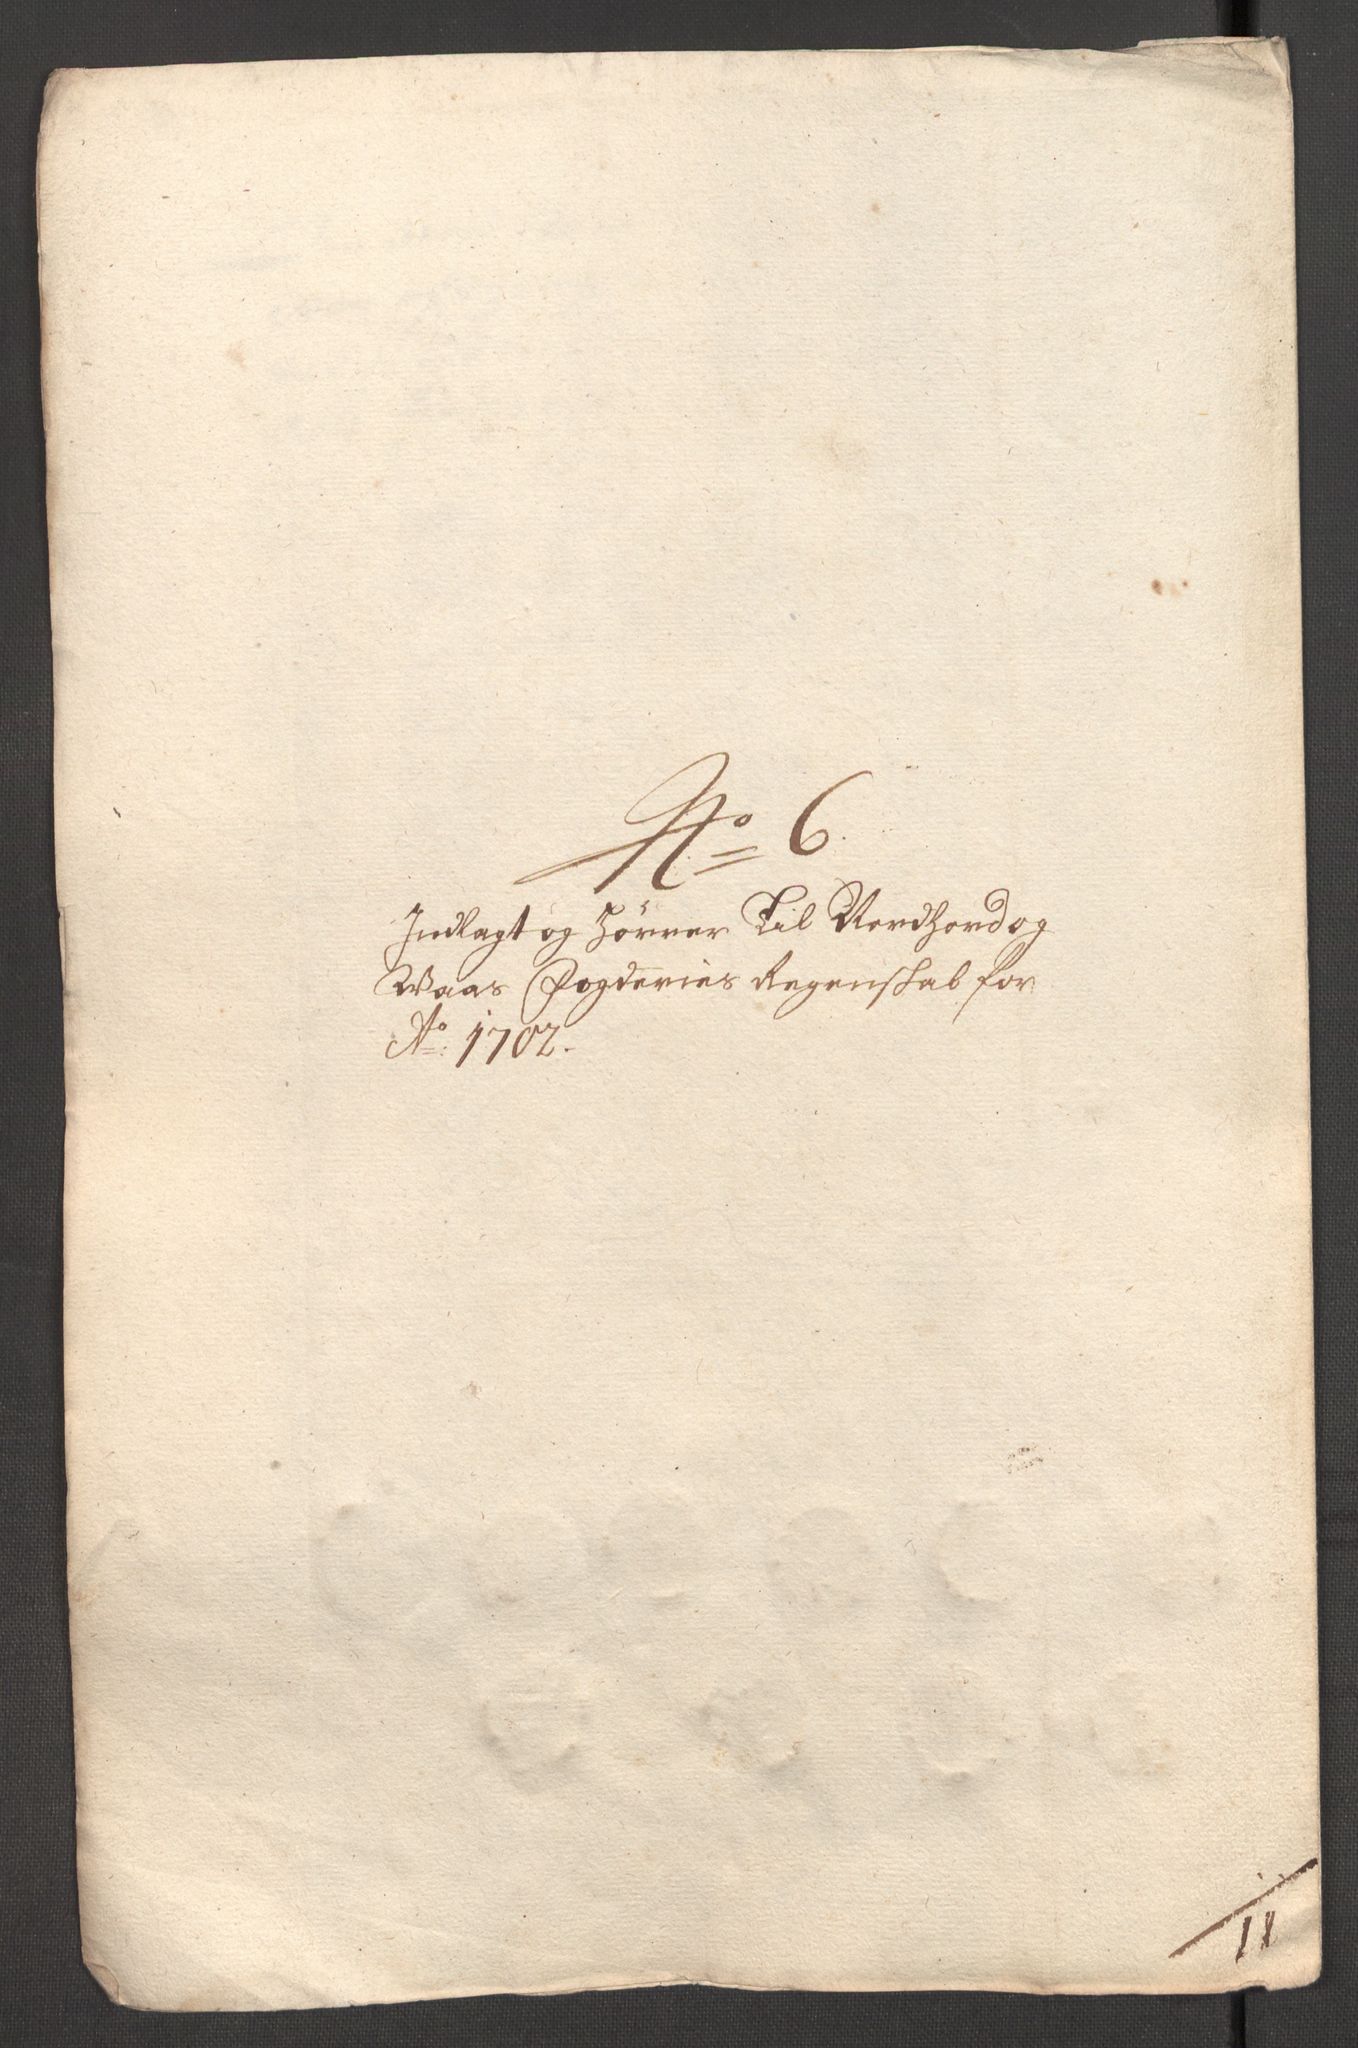 No 6.
Indlagt og hörrer Til Nordhord og
Waas Fogderies Regenskab for
Ao: 1702.
11